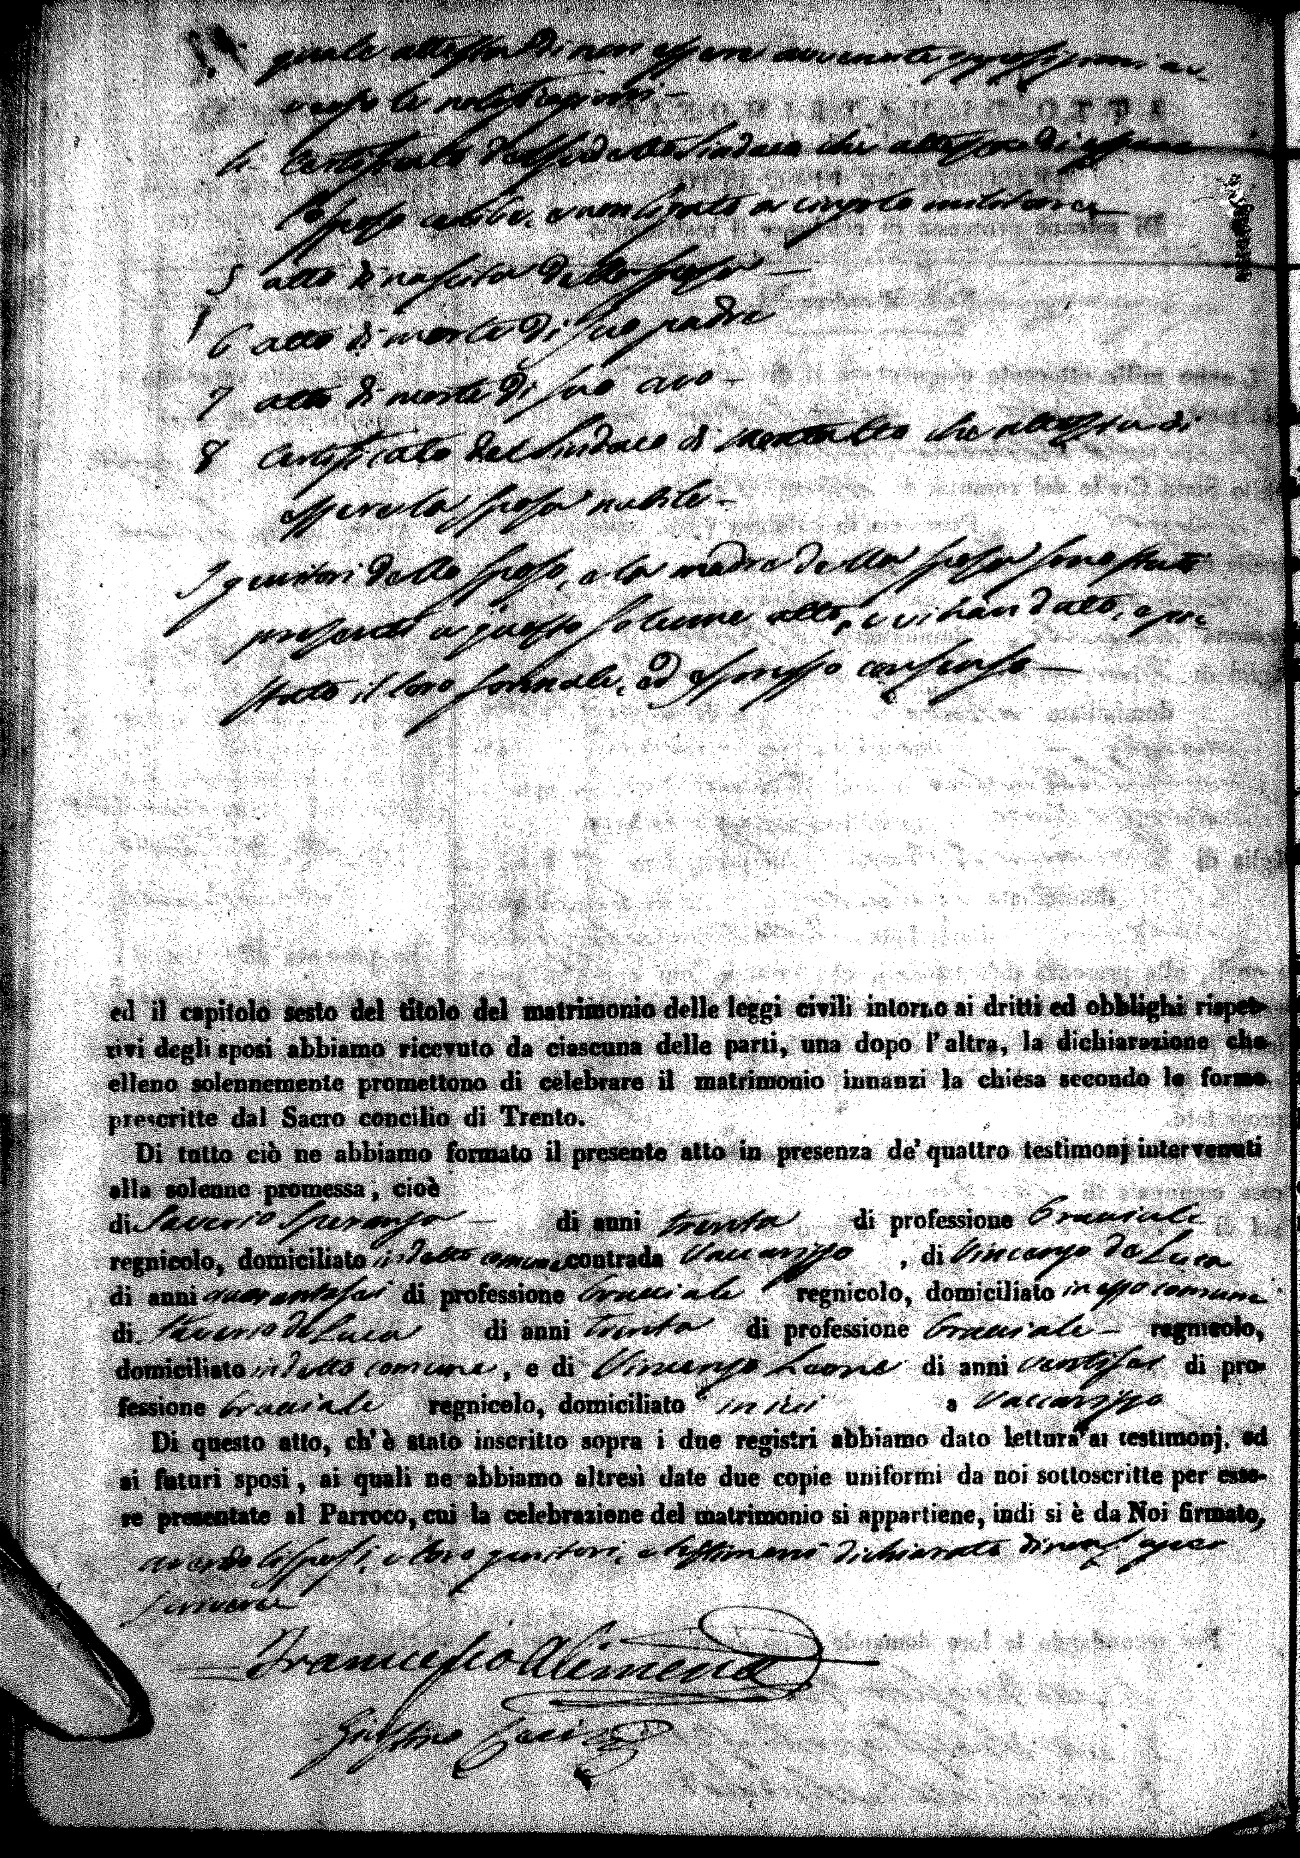 quale attesta di non essere avvenute opposizioni
verso le notificazioni —
4. Certificato dello Sindaco che attesta di essere
lo sposo celibe, e non legato a cingolo militare
5 atto di nascita della sposa —
6 atto di morte di suo padre
7 atto di morte di suo avo —
8 Certificato del Sindaco di Montalto che attesta di
essere la sposa nubile —
I genitori dello sposo, e la madre della sposa sono stati
presenti a questo solenne atto, e vi han dato, e pre
stato il loro formale, ed espresso consenso —
ed il capitolo sesto del titolo del matrimonio delle leggi civili intorno ai dritti ed obblighi rispet-
tivi degli sposi abbiamo ricevuto da ciascuna delle parti, una dopo l'altra, la dichiarazione che
elleno solennemente promettono di celebrare il matrimonio innanzi la chiesa secondo le forme
prescritte dal Sacro concilio di Trento.
Di tutto ciò ne abbiamo formato il presente atto in presenza de' quattro testimonj intervenuti
alla solenne promessa, cioè
di Saverio Speranza — di anni trenta di professione Bracciale
regnicolo, domiciliato in detto comune contrada Vaccarizzo, di Vincenzo de Luca
di anni quarantasei di professione bracciale regnicolo, domiciliato in esso comune
di Saverio de Luca di anni trenta di professione bracciale — regnicolo,
domiciliato in detto comune, e di Vincenzo Leone di anni ventisei di pro-
fessione bracciale regnicolo, domiciliato in ivi a Vaccarizzo
Di questo atto, ch'è stato inscritto sopra i due registri abbiamo dato lettura ai testimonj, ed
ai futuri sposi, ai quali ne abbiamo altresì date due copie uniformi da noi sottoscritte per esse-
re presentate al Parroco, cui la celebrazione del matrimonio si appartiene, indi si è da Noi firmato,
avendo li sposi, e loro genitori, e testimoni dichiarato di non sapere
scrivere
Francesco Alimena
Giustino